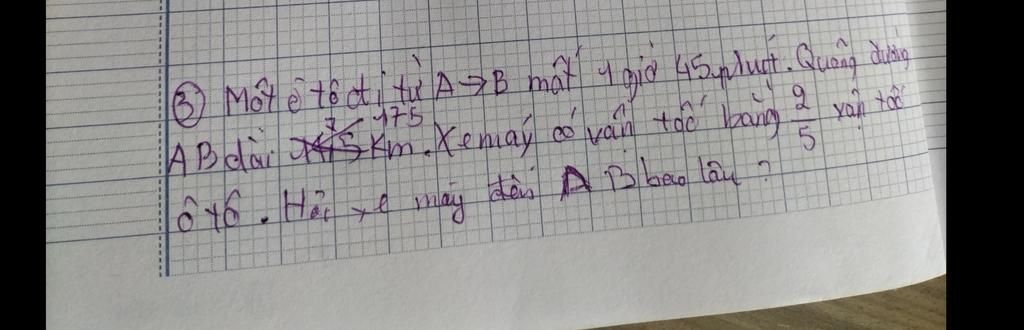 ③ Một ô tô đi từ A → B mất 1 giờ 45 phút. Quãng đường
AB dài 175 Km. Xe máy có vận tốc bằng 2/5 vận tốc
ô tô. Hỏi xe máy đến AB bao lâu ?